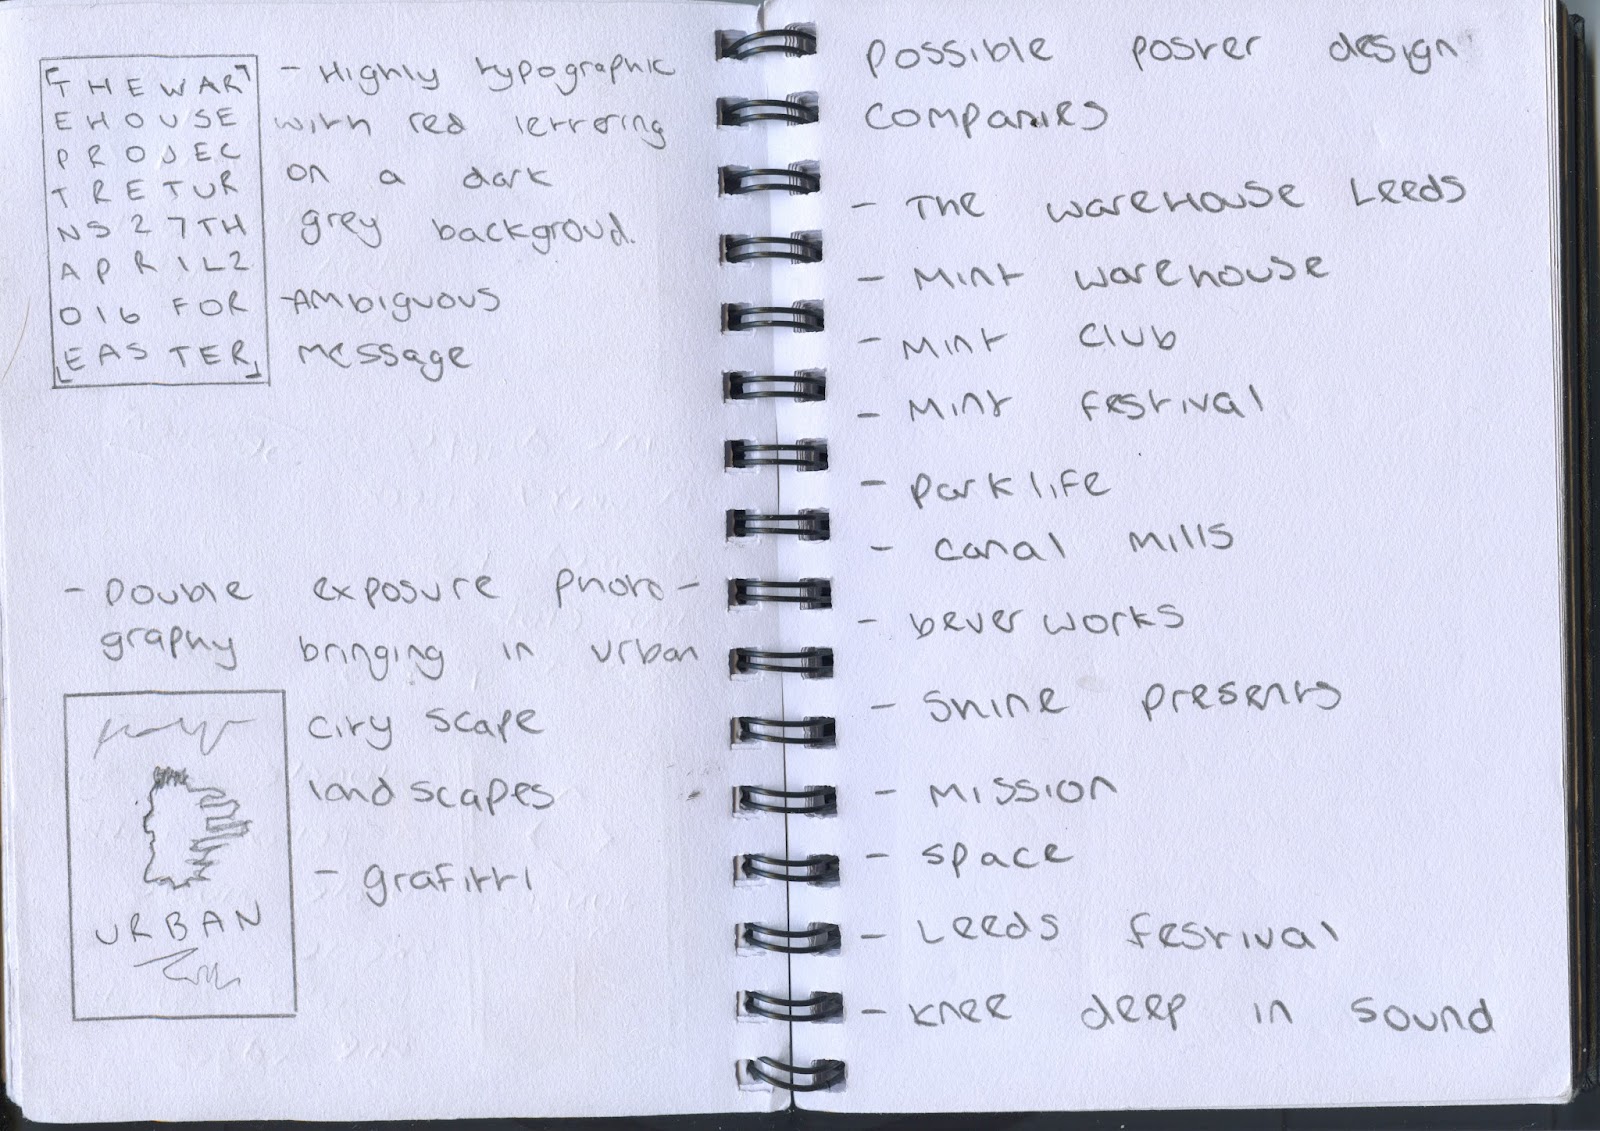 THEWAR
EHOUSE
PROJEC
TRETUR
NS27TH
APRIL2
016 FOR
EASTER
- Highly typographic
with red lettering
on a dark
grey backgroud.
-Ambiguous
message
- Double exposure photo-
graphy bringing in urban
city scape
landscapes
- grafitti
URBAN
Possible poster design
companies
- The warehouse Leeds
- Mint warehouse
- Mint club
- Mint festival
- parklife
- canal mills
- bever works
- shine presents
- mission
- space
- Leeds festival
- knee deep in sound